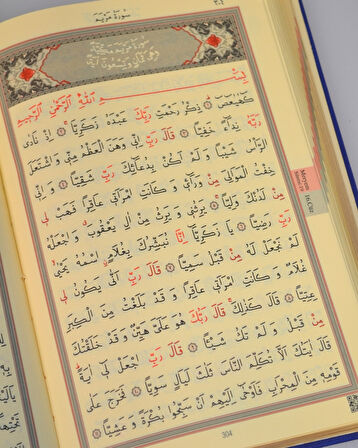 سُورَةُ مَرْيَمَ
سُورَةُ مَرْيَمَ مَكِّيَّةٌ
وَهِيَ ثَمَانٍ وَتِسْعُونَ اٰيَةً
بِسْمِ اللّٰهِ الرَّحْمٰنِ الرَّحِيمِ
كٓهٰيٰعٓصٓ ﴿١﴾ ذِكْرُ رَحْمَتِ رَبِّكَ عَبْدَهُ زَكَرِيَّا ﴿٢﴾ اِذْ نَادٰى
رَبَّهُ نِدَٓاءً خَفِيًّا ﴿٣﴾ قَالَ رَبِّ اِنّٖى وَهَنَ الْعَظْمُ مِنّٖى وَاشْتَعَلَ
الرَّاْسُ شَيْبًا وَلَمْ اَكُنْ بِدُعَٓائِكَ رَبِّ شَقِيًّا ﴿٤﴾ وَاِنّٖى
خِفْتُ الْمَوَالِىَ مِنْ وَرَٓائٖى وَكَانَتِ امْرَاَتٖى عَاقِرًا فَهَبْ لٖى
مِنْ لَدُنْكَ وَلِيًّا ﴿٥﴾ يَرِثُنٖى وَيَرِثُ مِنْ اٰلِ يَعْقُوبَ وَاجْعَلْهُ
رَبِّ رَضِيًّا ﴿٦﴾ يَا زَكَرِيَّٓا اِنَّا نُبَشِّرُكَ بِغُلَامٍ اسْمُهُ يَحْيٰى
لَمْ نَجْعَلْ لَهُ مِنْ قَبْلُ سَمِيًّا ﴿٧﴾ قَالَ رَبِّ اَنّٰى يَكُونُ لٖى
غُلَامٌ وَكَانَتِ امْرَاَتٖى عَاقِرًا وَقَدْ بَلَغْتُ مِنَ الْكِبَرِ
عِتِيًّا ﴿٨﴾ قَالَ كَذٰلِكَ قَالَ رَبُّكَ هُوَ عَلَىَّ هَيِّنٌ وَقَدْ خَلَقْتُكَ
مِنْ قَبْلُ وَلَمْ تَكُ شَيْـًٔا ﴿٩﴾ قَالَ رَبِّ اجْعَلْ لٖٓى اٰيَةً
قَالَ اٰيَتُكَ اَلَّا تُكَلِّمَ النَّاسَ ثَلٰثَ لَيَالٍ سَوِيًّا ﴿١٠﴾ فَخَرَجَ عَلٰى
قَوْمِهٖ مِنَ الْمِحْرَابِ فَاَوْحٰٓى اِلَيْهِمْ اَنْ سَبِّحُوا بُكْرَةً وَعَشِيًّا ﴿١١﴾
Meryem
16.Cüz
304